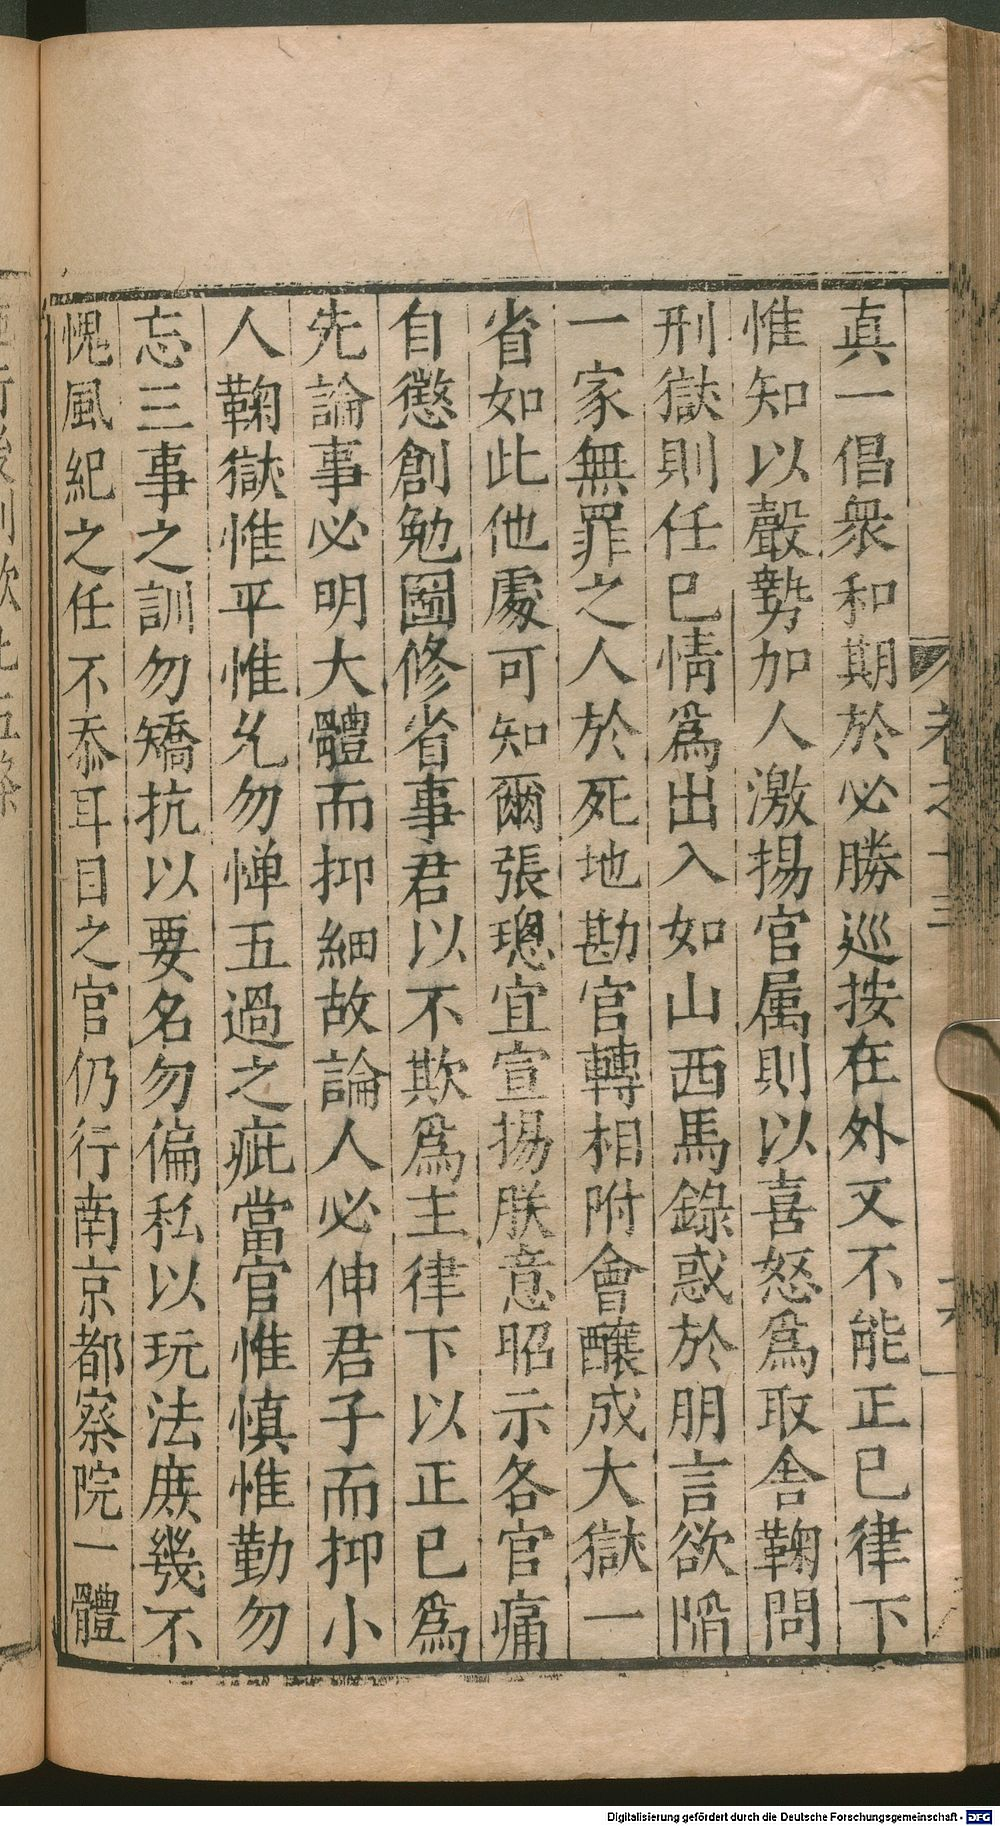 真一倡衆和期於必勝巡按在外又不能正已律下
惟知以聲勢加人激揚官属則以喜怒爲取舎鞠問
刑獄則任已情爲出入如山西馬錄惑於朋言欲陷
一家無罪之人於死地勘官轉相附會釀成大獄一
省如此他處可知爾張璁宜宣揚朕意昭示各官痛
自懲創勉圖修省事君以不欺爲主律下以正已爲
先論事必明大體而抑細故論人必伸君子而抑小
人鞠獄惟平惟允勿憚五過之疵當官惟慎惟勤勿
忘三事之訓勿矯抗以要名勿偏私以玩法庻幾不
愧風紀之任不忝耳目之官仍行南京都察院一體
卷之十三
Digitalisierung gefördert durch die Deutsche Forschungsgemeinschaft - DFG